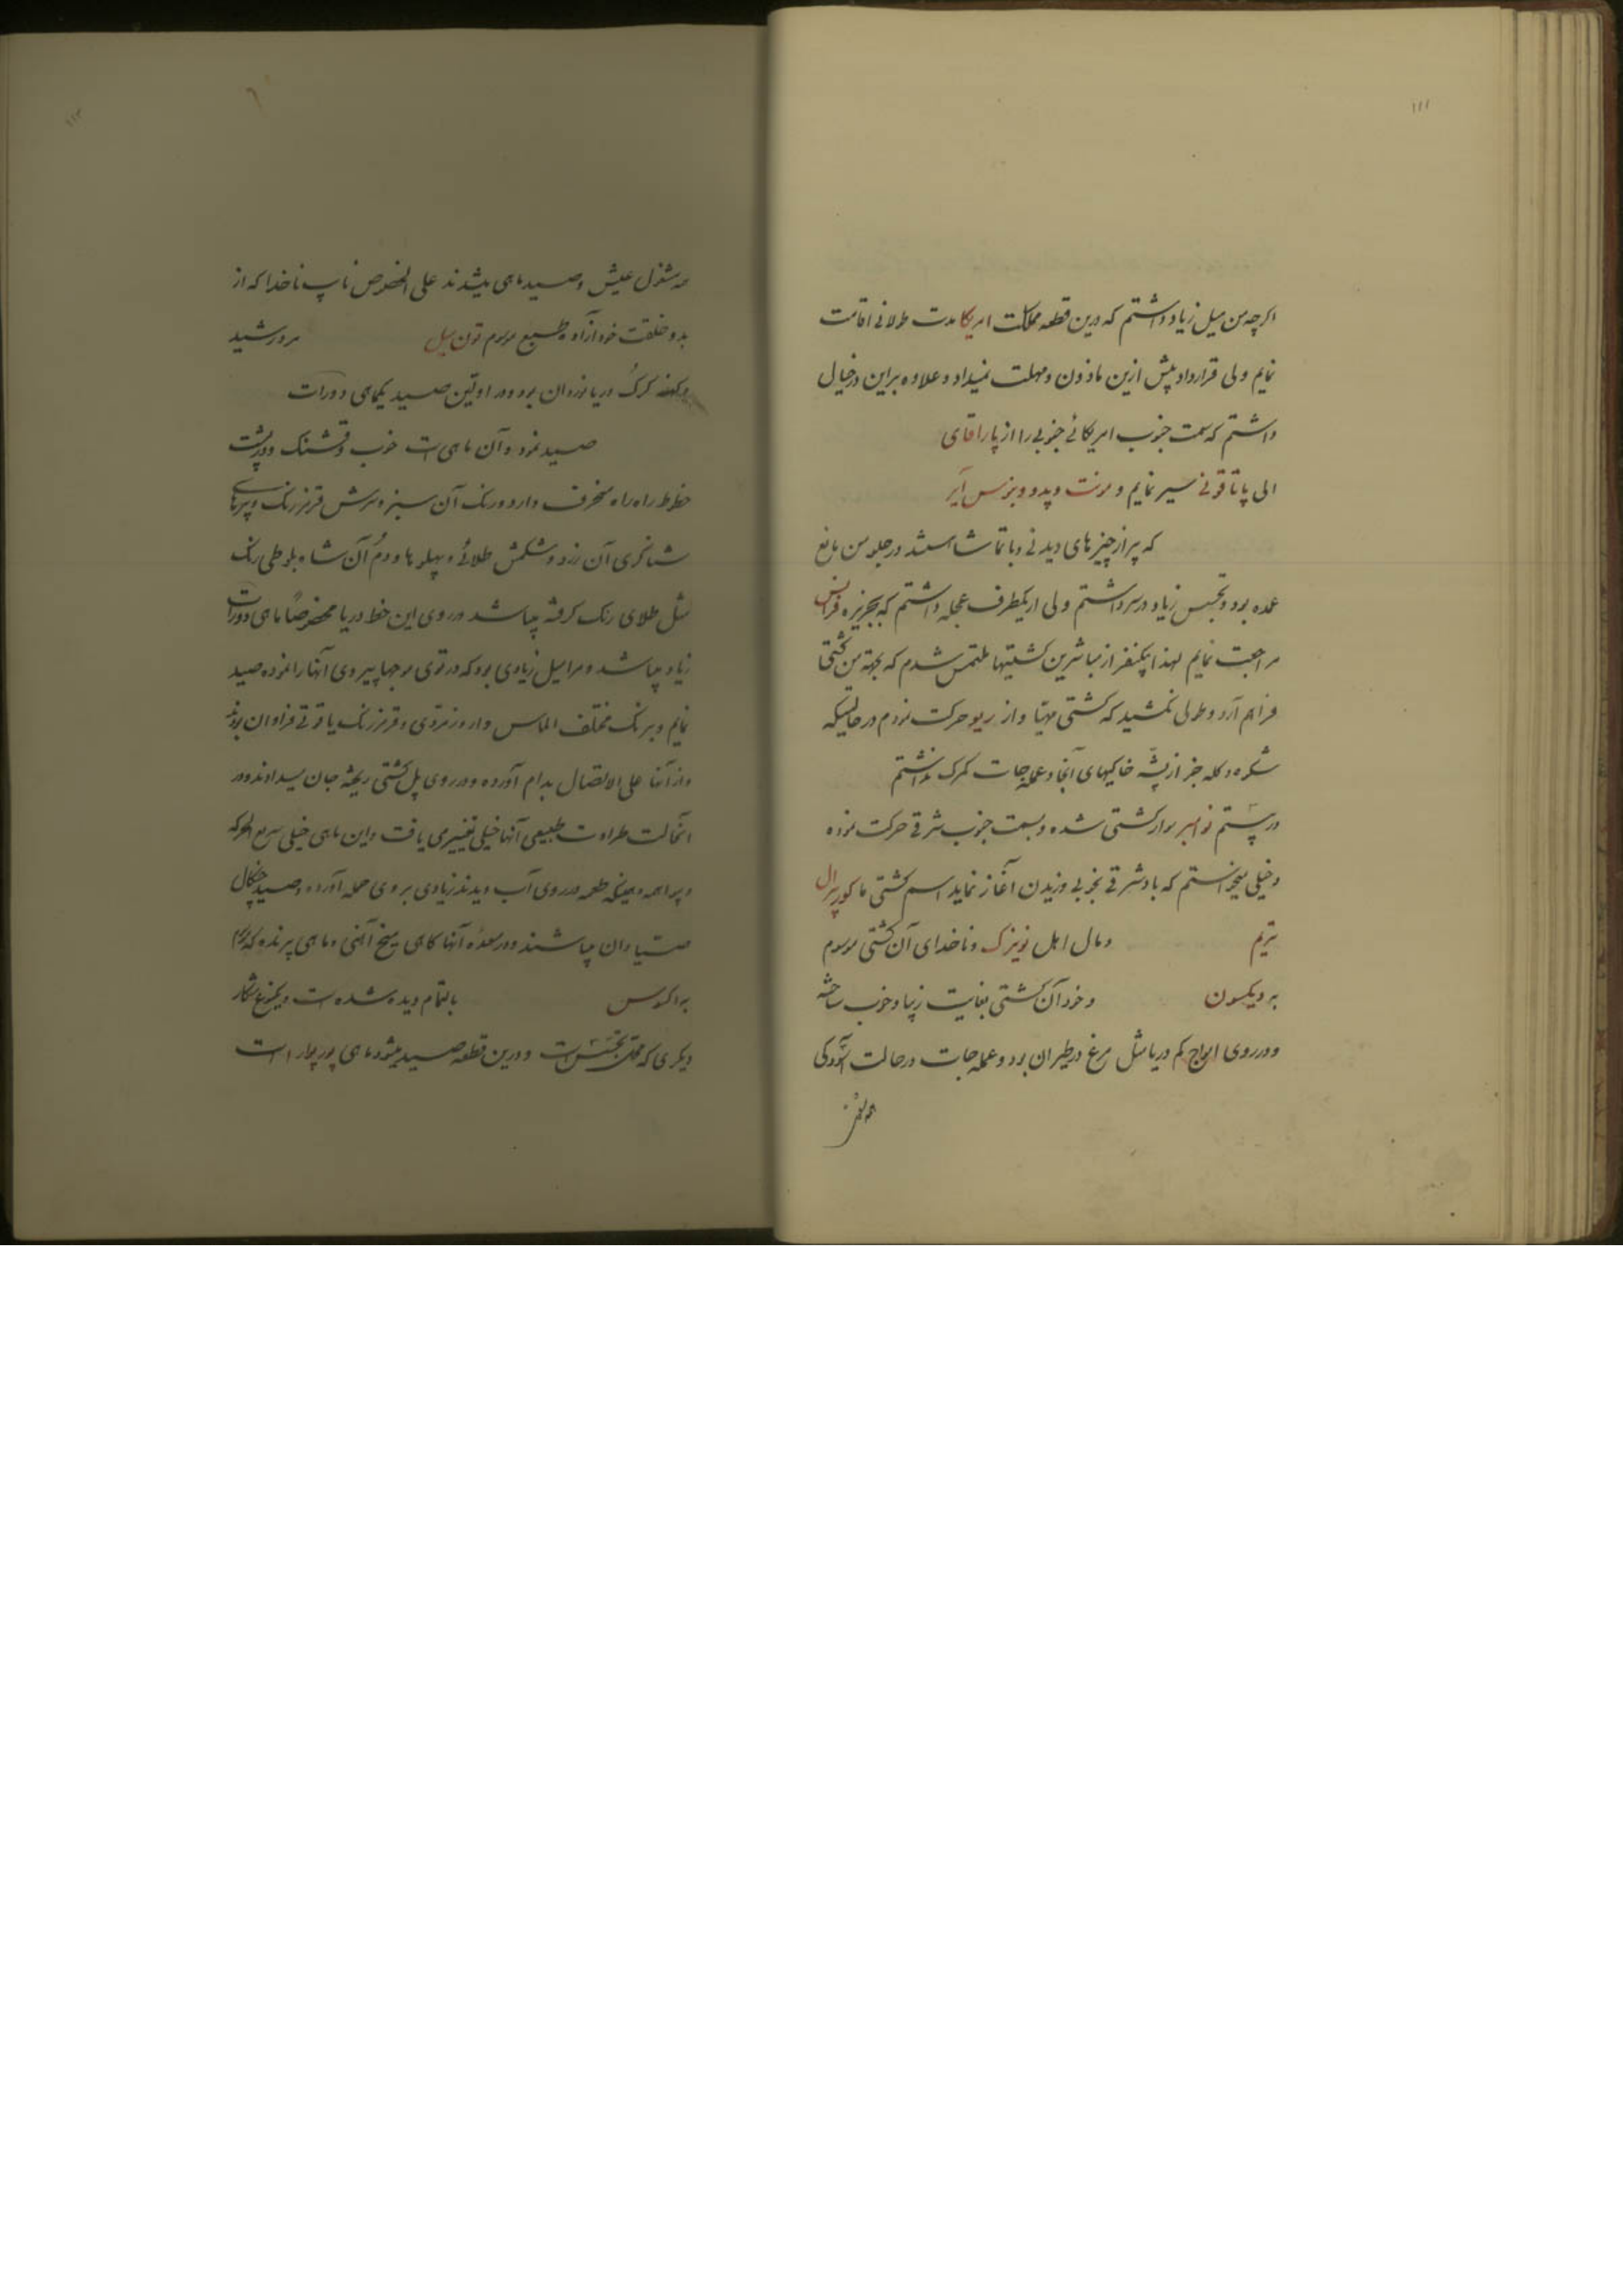 ۱۱۱
اگرچه من میل زیاد داشتم که درین قطعه مملکت امریکا مدت طولانی اقامت
نمایم ولی قرارداد پیش ازین ماذون و مهلت نمیداد و علاوه براین درخیال
داشتم که سمت جنوب امریکائی جنوبی را از پاراقای
الی پاتاقونی سیر نمایم و مونت ویدو و بونس آیر
که پر از چیزهای دیدنی و با تماشا هستند در جلو من مانع
عمده بود و تجسس زیاد در سر داشتم ولی از یکطرف عجله داشتم که بجزیره فرانس
مراجعت نمایم لهذا یکنفر از مباشرین کشتیها ملتمس شدم که بجهة من کشتی
فراهم آرد و طولی نکشید که کشتی مهیا و از ریو حرکت نمودم در حالتیکه
شکوه و گله جز از پشه خاکیهای آنجا و عملجات گمرک نداشتم
در بیستم نوامبر سوار کشتی شده و بسمت جنوب شرقی حرکت نموده
و خیلی میخواستم که باد شرقی بخوبی وزیدن آغاز نماید اسم کشتی ما کورپرال
تریم و مال اهل نویزک و ناخدای آن کشتی موسوم
به دیکسون و خود آن کشتی بغایت زیبا و خوب ساخته
و در روی امواج کم دریا مثل مرغ در طیران بود و عملجات در حالت آسودگی
۱۱۲
همه مشغول عیش و صید ماهی میشدند علی الخصوص نایب ناخدا که از
بدو خلقت خود آزاده طبع موسوم تون بیل مرد رشید
کهنه گرگ دریا نوردان بود و در اولین صید یکماهی دورات
صید نمود و آن ماهی است خوب و قشنگ و در پشت
خطوط راه راه منحرف دارد و رنگ آن سبز و سرش قرمز رنگ و پرهای
شناگری آن زرد و شکمش طلائی و پهلوها و دم آن شاه بلوطی رنگ
مثل طلای رنگ گرفته میباشد در روی این خط دریا مخصوصا ماهی دورات
زیاد میباشد و مرا میل زیادی بود که در توی موجها پیروی آنها را نموده صید
نمایم و برنگ مختلف الماس وار و زمردی و قرمز رنگ یاقوتی فراوان بودند
و از آنها علی الاتصال بدام آورده و در روی پل کشتی ریخته جان میدادند و در
آنحالت طراوت طبیعی آنها خیلی تغییری یافت و این ماهی خیلی سریع الحرکه
و پر واهمه و همینکه طعمه در روی آب دیدند زیادی بر وی حمله آورده و صید چنگال
صیادان میباشند و در معده آنها گاهی میخ آهنی و ماهی پرنده که موسوم
به اکسوس بالتمام دیده شده است و یکنوع شکار
دیگری که محل تجسس است و درین قطعه صید میشود ماهی پورپوار است